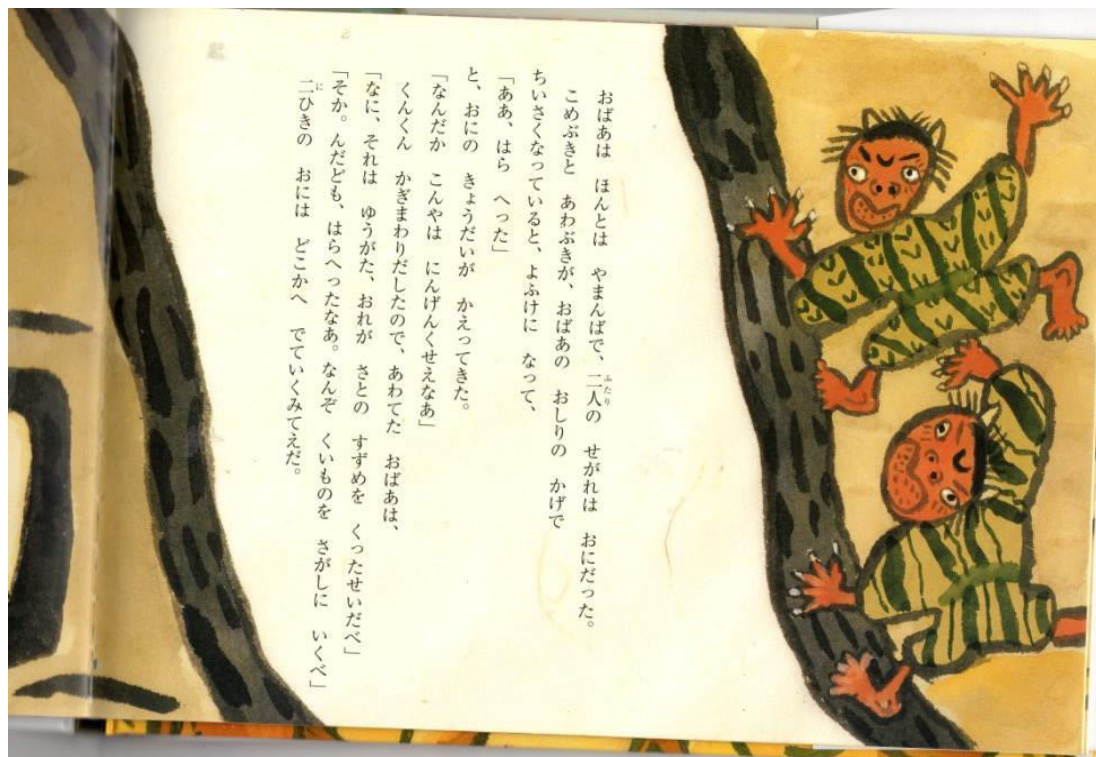 おばあは　ほんとは　やまんばで、二人の　せがれは　おにだった。
こめぶきと　あわぶきが、おばあの　おしりの　かげで
ちいさくなっていると、よふけに　なって、
「ああ、はら　へった」
と、おにの　きょうだいが　かえってきた。
「なんだか　こんやは　にんげんくせえなあ」
くんくん　かぎまわりだしたので、あわてた　おばあは、
「なに、それは　ゆうがた、おれが　さとの　すずめを　くったせいだべ」
「そか。んだども、はらへったなあ。なんぞ　くいものを　さがしに　いくべ」
二ひきの　おには　どこかへ　でていくみてえだ。